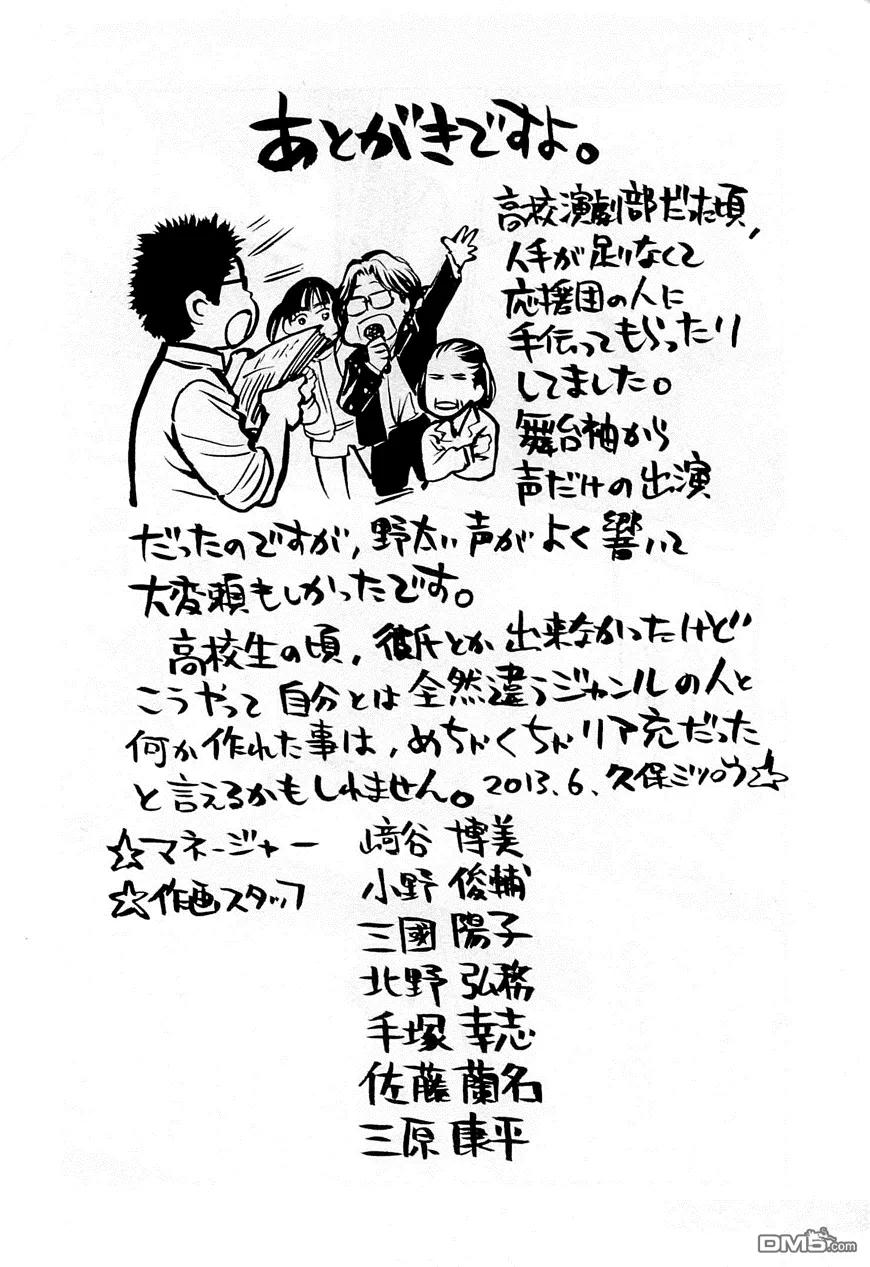 あとがきですよ。
高校演劇部だった頃、
人手が足りなくて
応援団の人に
手伝ってもらったり
してました。
舞台袖から
声だけの出演
だったのですが、野太い声がよく響いて
大変頼もしかったです。
高校生の頃、彼氏とか出来なかったけど
こうやって自分とは全然違うジャンルの人と
何か作れた事は、めちゃくちゃリア充だった
と言えるかもしれません。2013.6.久保ミツロウ☆
☆マネージャー 﨑谷 博美
☆作画スタッフ 小野 俊輔
三國 陽子
北野 弘務
手塚 幸志
佐藤 蘭名
三原 康平
DM5.com